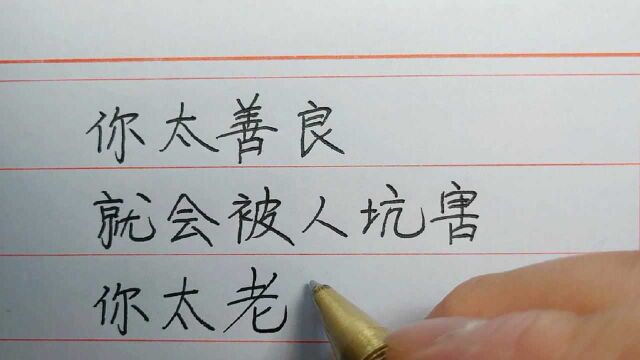 你太善良
就会被人坑害
你太老